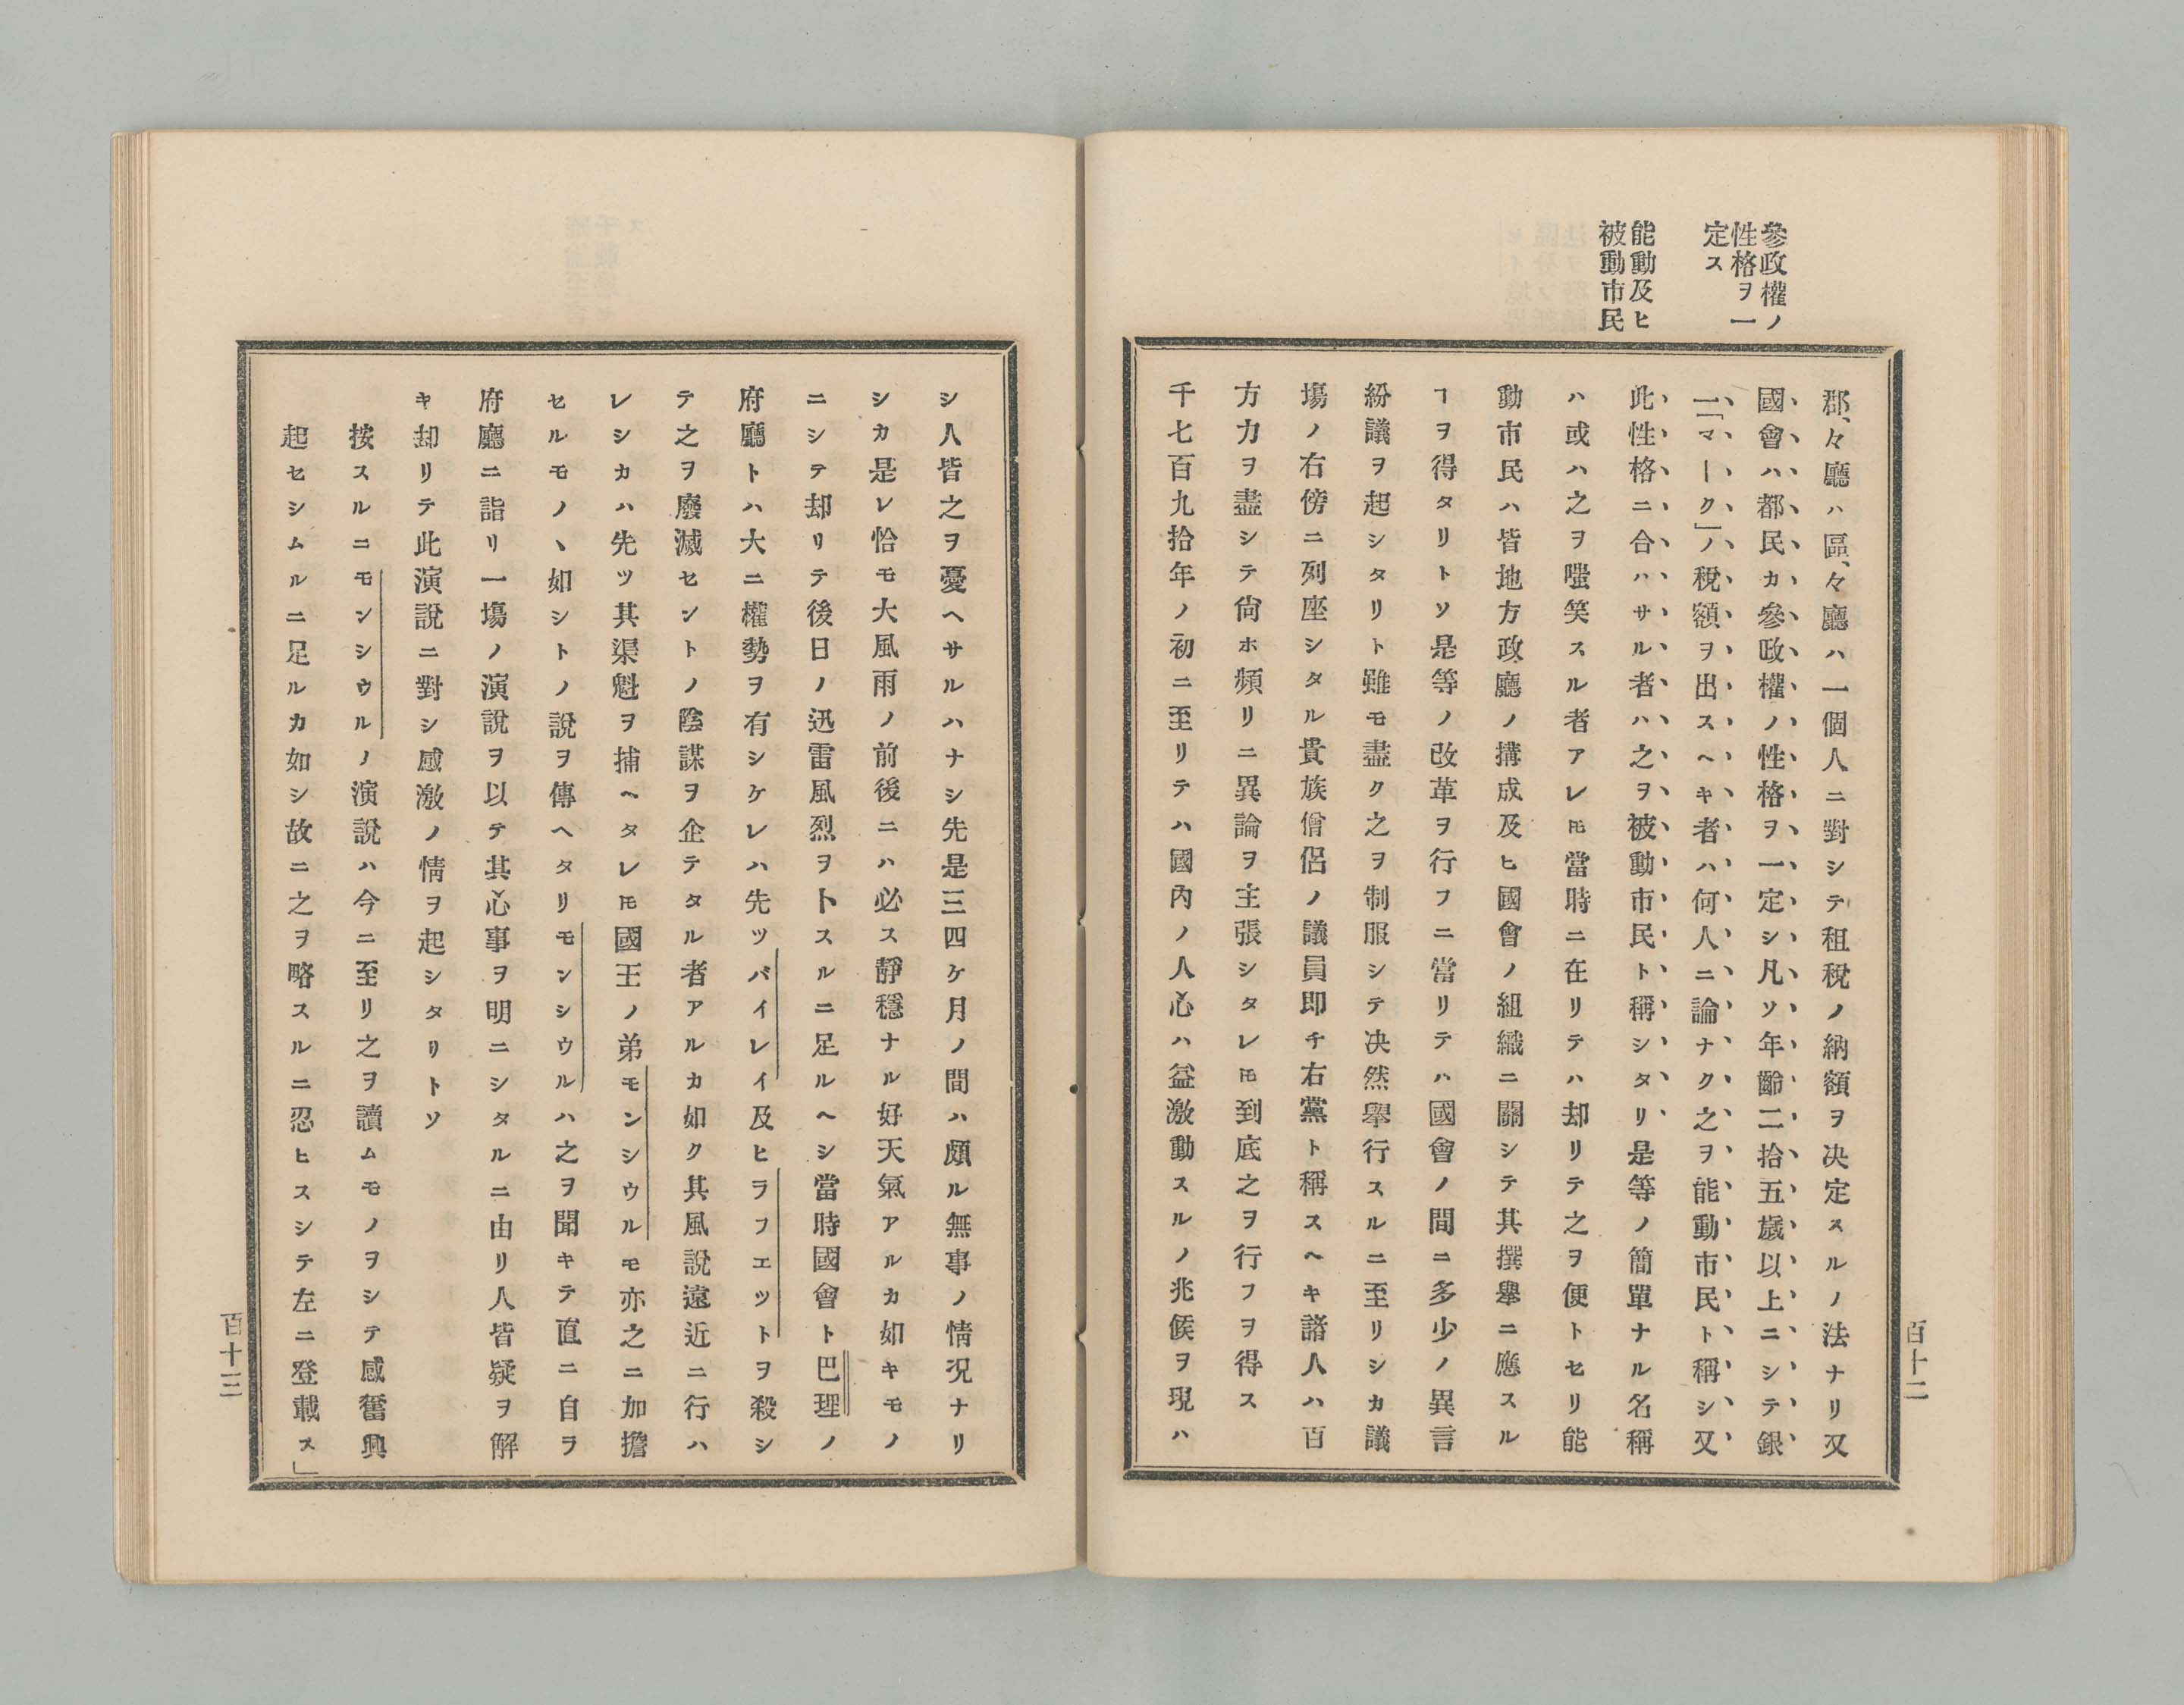 參政權ノ
性格ヲ一
定ス
能動及ヒ
被動市民
郡、々廳ハ區、々廳ハ一個人ニ對シテ租稅ノ納額ヲ决定スルノ法ナリ又
國會ハ都民カ參政權ノ性格ヲ一定シ凡ソ年齡二拾五歲以上ニシテ銀
一「マーク」ノ稅額ヲ出スヘキ者ハ何人ニ論ナク之ヲ能動市民ト稱シ又
此性格ニ合ハサル者ハ之ヲ被動市民ト稱シタリ是等ノ簡單ナル名稱
ハ或ハ之ヲ嗤笑スル者アレ𪜈當時ニ在リテハ却リテ之ヲ便トセリ能
動市民ハ皆地方政廳ノ搆成及ヒ國會ノ組織ニ關シテ其撰擧ニ應スル
ヿヲ得タリトソ是等ノ改革ヲ行フニ當リテハ國會ノ間ニ多少ノ異言
紛議ヲ起シタリト雖モ盡ク之ヲ制服シテ决然擧行スルニ至リシカ議
塲ノ右傍ニ列座シタル貴族僧侶ノ議員卽チ右黨ト稱スヘキ諸人ハ百
方力ヲ盡シテ尙ホ頻リニ異論ヲ主張シタレ𪜈到底之ヲ行フヲ得ス
千七百九拾年ノ初ニ至リテハ國內ノ人心ハ益激動スルノ兆候ヲ現ハ
百十二
シ人皆之ヲ憂ヘサルハナシ先是三四ケ月ノ間ハ頗ル無事ノ情况ナリ
シカ是レ恰モ大風雨ノ前後ニハ必ス靜穩ナル好天氣アルカ如キモノ
ニシテ却リテ後日ノ迅雷風烈ヲトスルニ足ルヘシ當時國會ト巴理ノ
府廳トハ大ニ權勢ヲ有シケレハ先ツバイレイ及ヒラフエットヲ殺シ
テ之ヲ廢滅セントノ陰謀ヲ企テタル者アルカ如ク其風說遠近ニ行ハ
レシカハ先ツ其渠魁ヲ捕ヘタレ𪜈國王ノ弟モンシウルモ亦之ニ加擔
セルモノヽ如シトノ說ヲ傳ヘタリモンシウルハ之ヲ聞キテ直ニ自ラ
府廳ニ詣リ一塲ノ演說ヲ以テ其心事ヲ明ニシタルニ由リ人皆疑ヲ解
キ却リテ此演說ニ對シ感激ノ情ヲ起シタリトソ
按スルニモンシウルノ演說ハ今ニ至リ之ヲ讀ムモノヲシテ感奮興
起セシムルニ足ルカ如シ故ニ之ヲ略スルニ忍ヒスシテ左ニ登載ス」
百十三